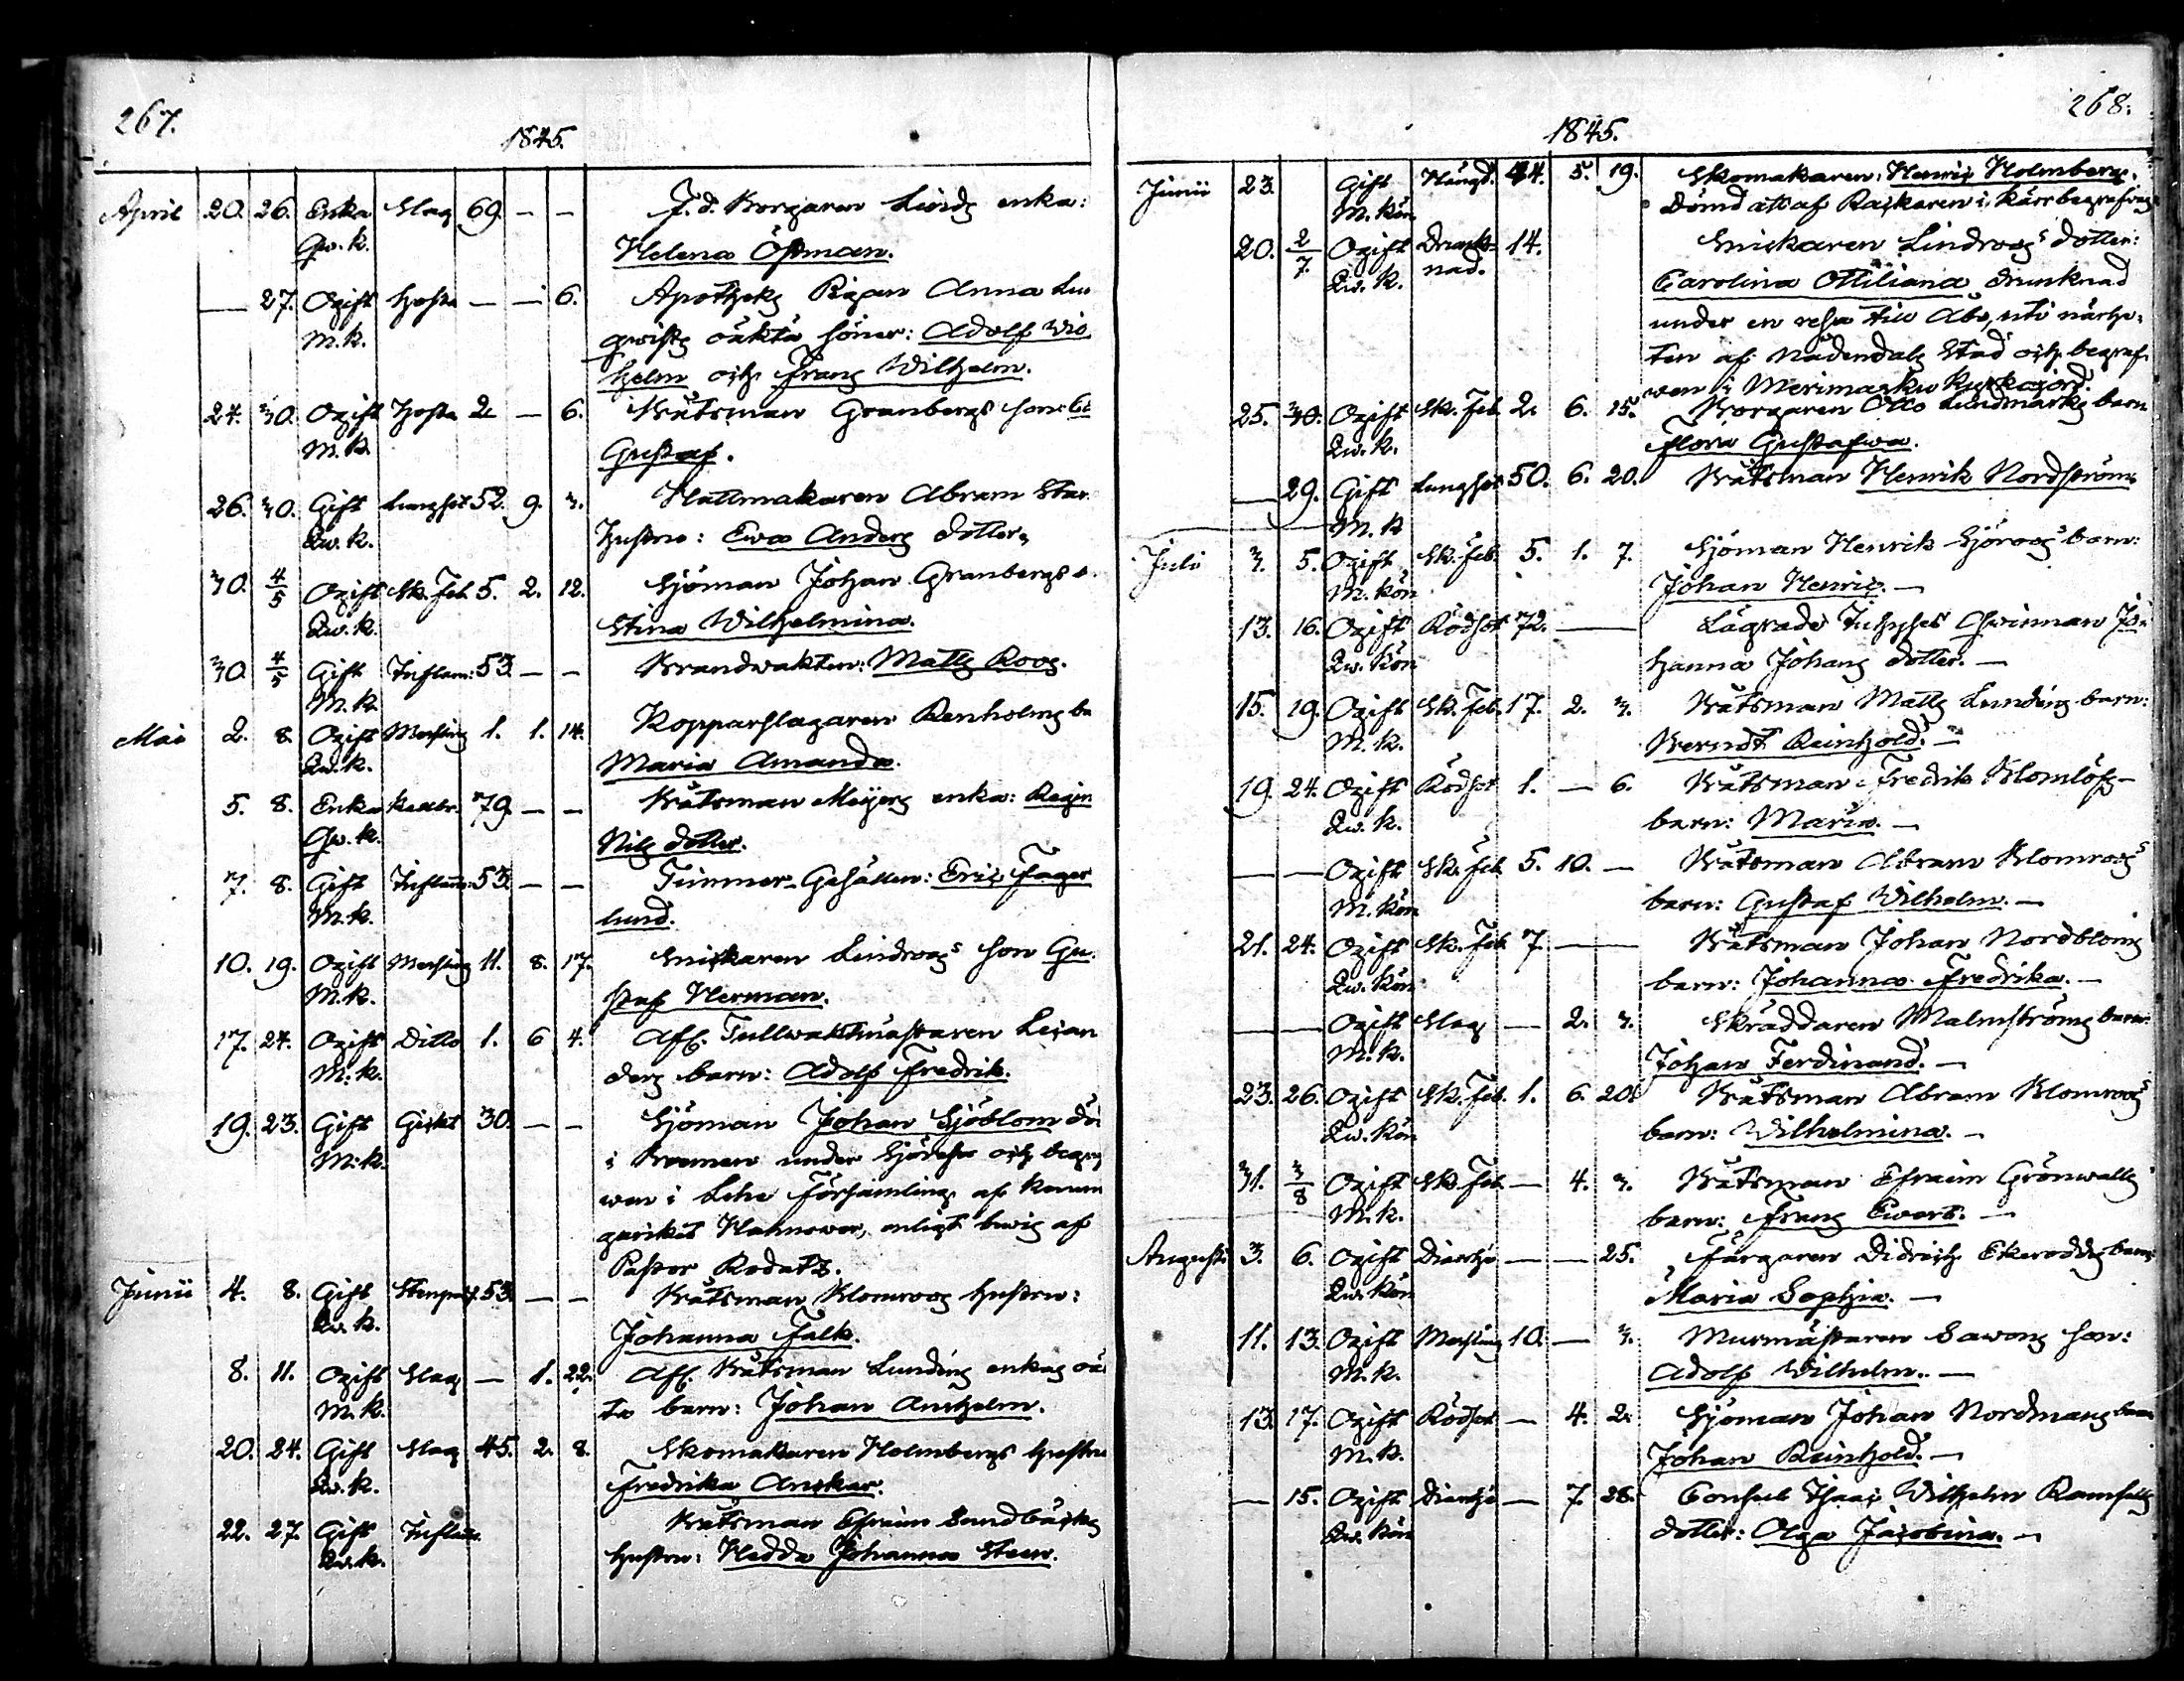 267.
1845.
April 20. 26. Enka Slag 69. — — F. d. Borgaren Lürdz enka:
Qw. k. Helena Öhman.
— 27. Ogift Hosta — — 6. Apotheks Pigan Anna
M. K. qwists oäkta söner: Adolf Wil
helm och Frans Wilhelm.
24. 30. Ogift Hosta 2. — 6. Båtsman Granbergs son:
M. K. Gustaf.
26. 30. Gift Lungsot 52. 9. 3. Hattmakaren Abram
Qw. K. hustru: Ewa Anders dotter,
30. 4/5 Ogift Sk. Feb. 5. 2. 12. Sjöman Johan Granbergs
Qw. K. Stina Wilhelmina.
30. 4/5 Gift Inflam: 53. — — Brandwakten: Matts Roos.
M. K.
Mai 2. 8. Ogift Messling 1. 1. 14. Kopparslagaren Renholms
Qw. K. Maria Amanda.
5. 8. Enka 79. — — Båtsman Meijers enka: Regin
Qw. K. Nils dotter.
7. 8. Gift Inflam: 53. — — Timmer-Gesällen: Eric Fager
M. K. lund.
10. 19. Ogift Messling 11. 8. 17. Snickaren Lindroos son Gu
M. K. staf Herman.
17. 24. Ogift Ditto 1. 6 4. Afl. Tullwaktmästaren Lejan
M. K. ders barn: Adolf Fredrik.
19. 23. Gift Gickt 30. — — Sjöman Johan Sjöblom dö
M. K. i Bremen under Sjöresa och begra
wen i Lehe Församling af Konun
gariket Hannover, enligt bewis af
Pastor Rodatz.
Junii 4. 8. Gift 53. — — Båtsman Blomroos hustru:
Qw. K. Johanna Falk.
8. 11. Ogift Slag — 1. 22. Afl. Båtsman Lundins enkas oäk
M. K. ta barn: Johan Anshelm.
20. 24. Gift Slag 45. 2. 8. Skomakaren Holmbergs hustru
Qw. K. Fredrika Anckar.
22. 27. Gift Inflam. Båtsman Efraim Sundbäcks
Qw. K. hustru: Hedda Johanna Steen.
268.
1845.
Junii 23. Gift Hängd. 44. 5. 19. Skomakaren: Henric Holmberg.
M. Kön Dömd att af Rackaren i Kärr begrafwas
20. 2/7. Ogift Drunk- 14. Snickaren Lindroos dotter:
Qw. K. nad. Carolina Ottiliana drunknad
under en resa till Åbo, uti närhe-
ten af Nådendals Stad och begraf
wen i Merimasku Kyrkojord.
25. 30. Ogift Sk. Feb 2. 6. 15. Borgaren Otto Lindmarks barn
Qw. K. Floria Gustafwa.
— 29. Gift Lungsot 50. 6. 20. Båtsman Henrik Nordström
M. K
Juli 3. 5. Ogift Sk. Feb. 5. 1. 7. Sjöman Henrik Sjöroos barn:
M. Kön Johan Henric. —
13. 16. Ogift Rödsot 72. — Lägrade Inhyses Qwinnan Jo-
Qw. Kön hanna Johans dotter. —
15. 19. Ogift Sk. Feb. 17. 2. 3. Båtsman Matts Lundins barn:
M. K. Berndt Reinhold. —
19. 24. Ogift Rödsot 1. — 6. Båtsman Fredrik Blomlöfs
Qw. K. barn: Maria. —
— — Ogift Sk. Feb 5. 10. — Båtsman Abram Blomroos
M. Kön barn: Gustaf Wilhelm. —
21. 24. Ogift Sk. Feb 7. — Båtsman Johan Nordbloms
Qw. Kön barn: Johanna Fredrika. —
— — Ogift Slag — 2. 3. Skräddaren Malmströms barn:
M. K. Johan Ferdinand. —
23. 26. Ogift Sk. Feb. 1. 6. 20. Båtsman Abram Blomroos
Qw. Kön barn: Wilhelmina. —
31. 3/8 Ogift Sk. Feb — 4. 3. Båtsman Efraim Grönwalls
M. K. barn: Frans Ewert. —
Augusti 3. 6. Ogift Diarrhé — — 25. Färgaren Didrich Ekerodds barn
Qw. Kön Maria Sophia. —
11. 13. Ogift Messling 10. — 3. Murmästaren Sawons son:
M. K. Adolf Wilhelm. —
13. 17. Ogift Rödsot — 4. 2. Sjöman Johan Nordmans barn
M. K. Johan Reinhold. —
— 15. Ogift Diarrhé — 7. 28. Consul Isaac Wilhelm Ramsells
Qw. Kön dotter: Olga Jacobina. —